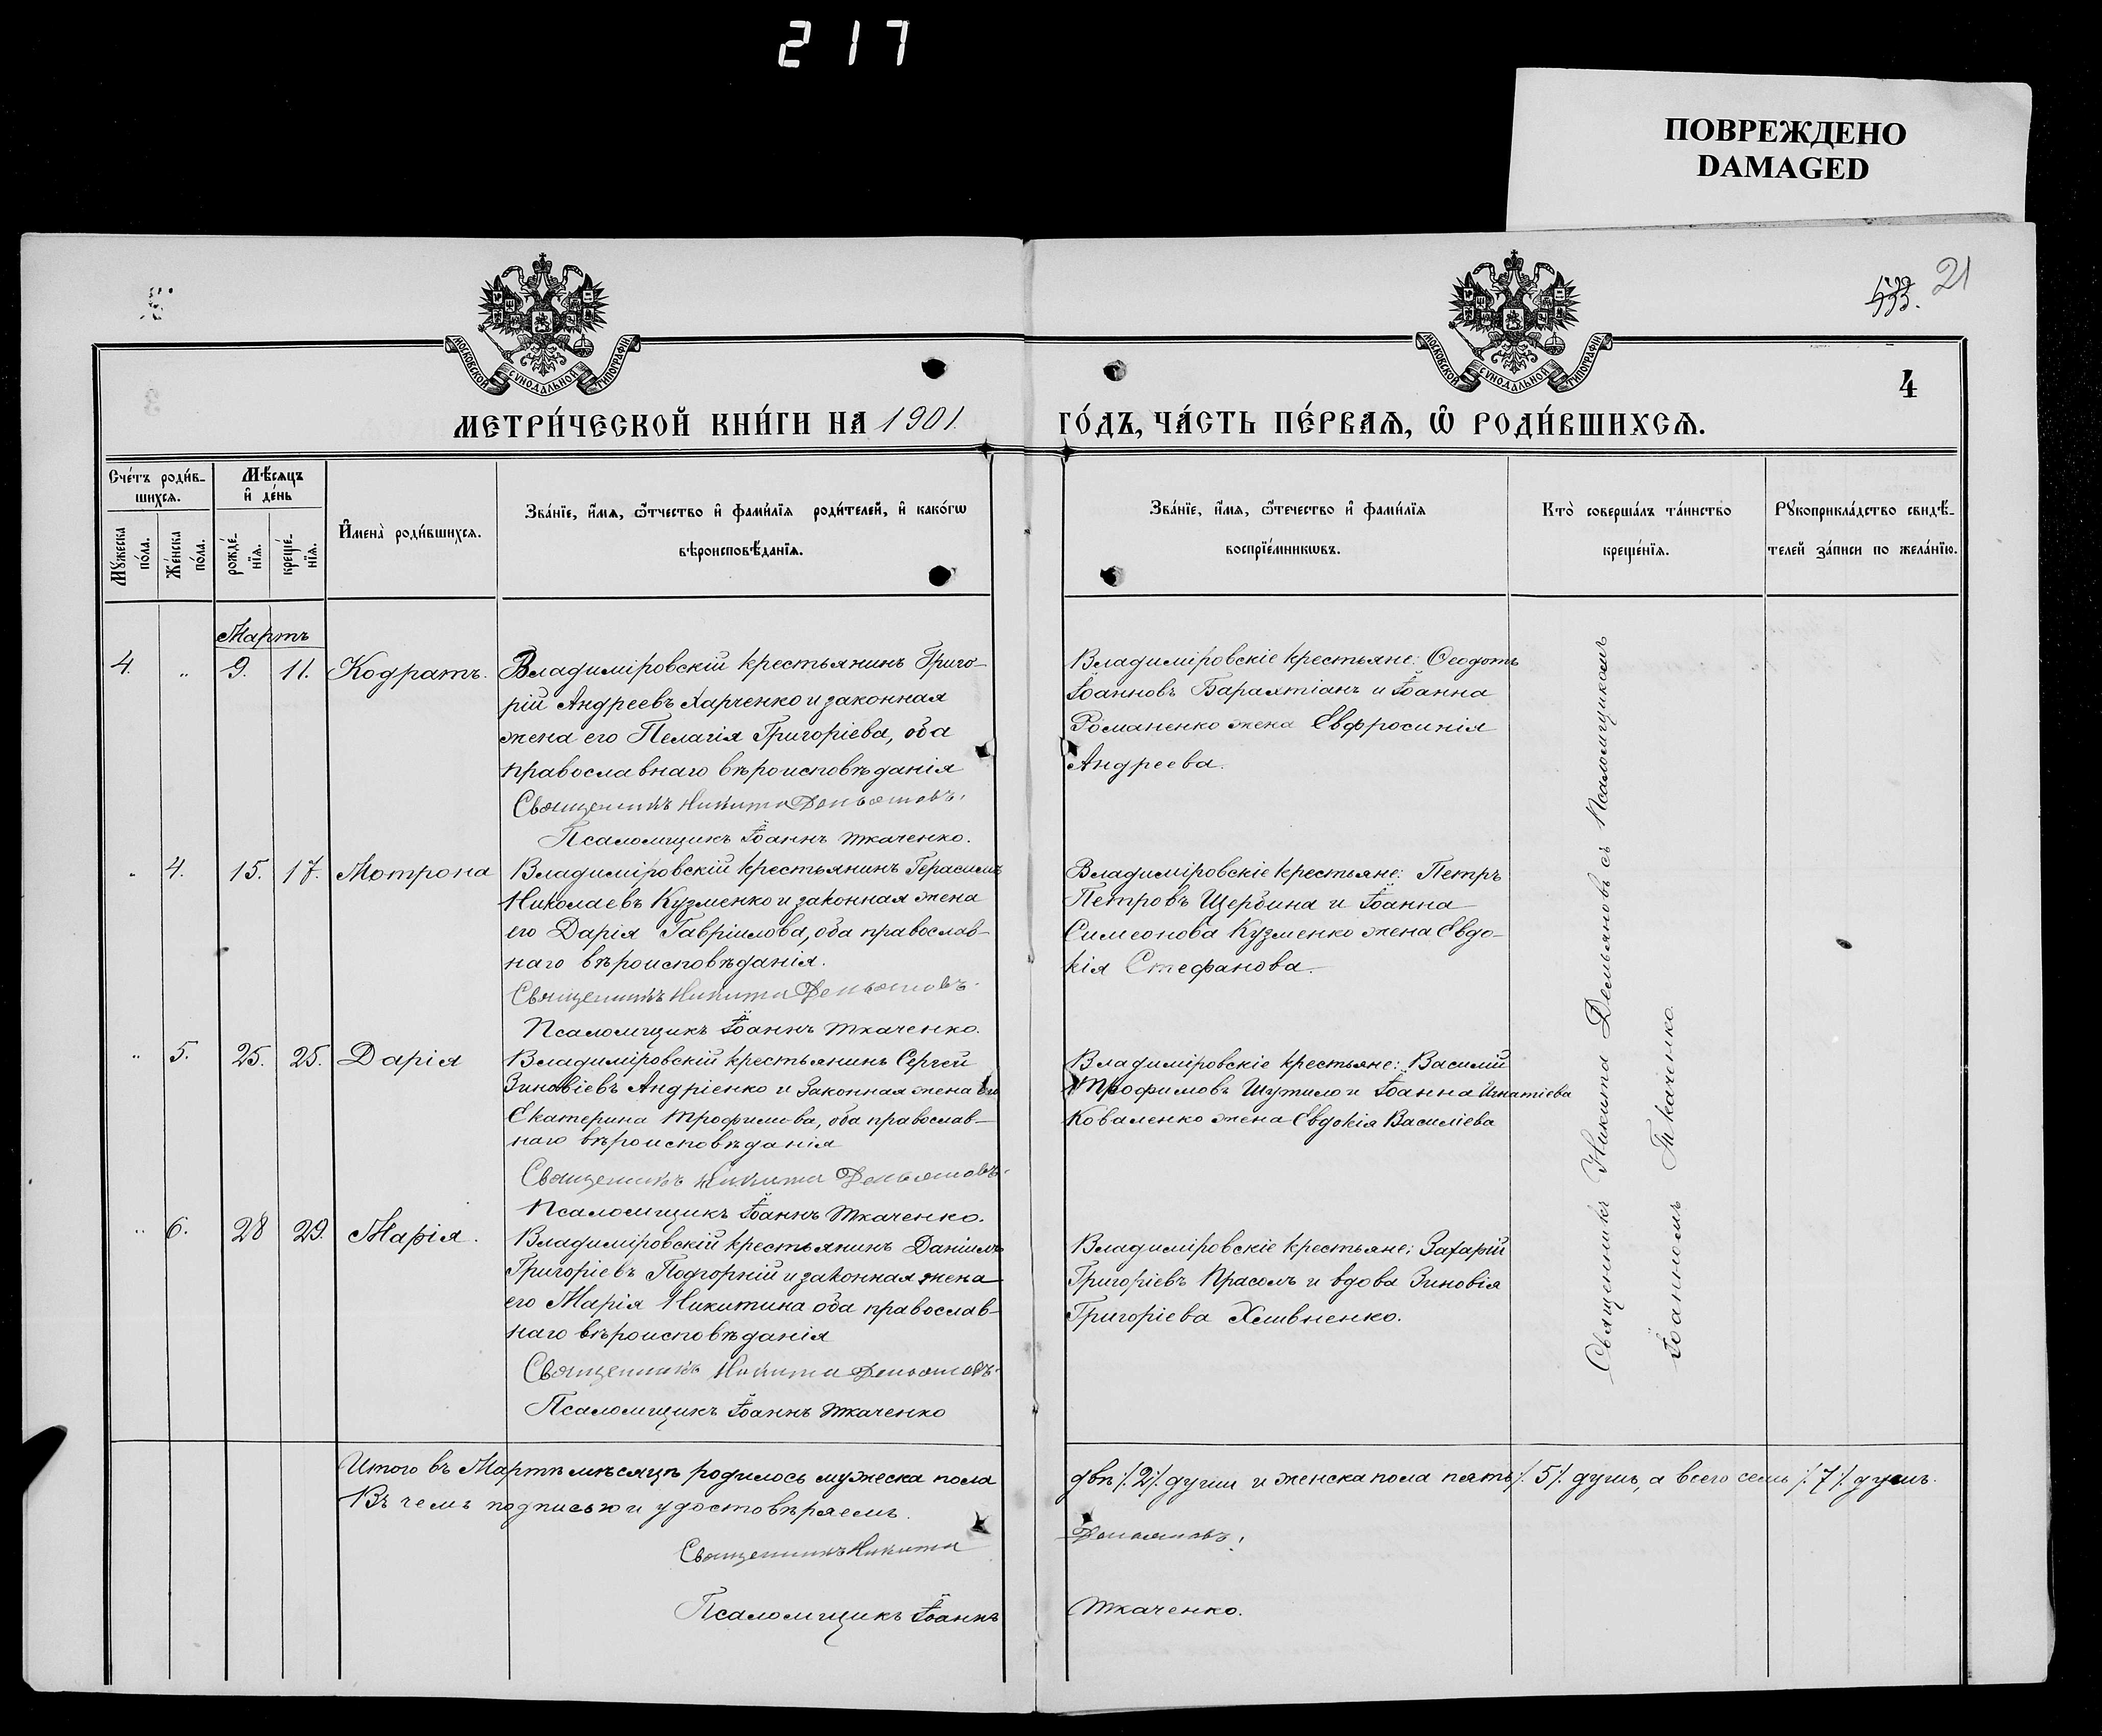 217
ПОВРЕЖДЕНО
DAMAGED
21
4
МОСКОВСКОЙ СѴНОДАЛЬНОЙ ТИПОГРАФІИ
МОСКОВСКОЙ СѴНОДАЛЬНОЙ ТИПОГРАФІИ
МЕТРИ́ЧЕСКОЙ КНИ́ГИ НА 1901 ГО́ДЪ, ЧА́СТЬ ПЕ́РВАѦ, Ѽ РОДИ́ВШИХСѦ.
Сче́тъ роди́в-
шихсѧ.
Мѣ́сѧцъ
и҆ де́нь
Мꙋжеска
по́ла.
Же́нска
по́ла.
рожде́-
нїѧ.
креще́-
нїѧ.
И҆мена̀ роди́вшихсѧ.
Зва́нїе, и҆́мѧ, ѻ҆́тчество и҆ фами́лїѧ роди́телей, и҆ како́гѡ
вѣроисповѣ́данїѧ.
Зва́нїе, и҆́мѧ, ѻ҆́течество и҆ фами́лїѧ
воспрїе́мникѡвъ.
Кто̀ соверша́лъ та́инство
креще́нїѧ.
Рꙋкоприкла́дство свидѣ́-
телей за́писи по жела́нїю.
Мартъ
4. „ 9. 11. Кодратъ. Владиміровскій крестьянинъ Григо-
рій Андреевъ Харченко и законная
жена его Пелагія Григоріева, оба
православнаго вѣроисповѣданія
Священникъ Никита Демьяновъ.
Псаломщикъ Іоаннъ Ткаченко.
Владиміровскіе крестьяне: Ѳеодотъ
Іоанновъ Бараятіанъ и Іоанна
Романенко жена Евфросинія
Андреева.
„ 4. 15. 17. Мотрона Владиміровскій крестьянинъ Герасимъ
Николаевъ Кузменко и законная жена
его Дарія Гавріилова, оба православ-
наго вѣроисповѣданія.
Священникъ Никита Демьяновъ.
Псаломщикъ Іоаннъ Ткаченко.
Владиміровскіе крестьяне: Петръ
Петровъ Щербина и Іоанна
Симеонова Кузменко жена Евдо-
кія Стефанова.
„ 5. 25. 25. Дарія Владиміровскій крестьянинъ Сергей
Зиновіевъ Андріенко и законная жена его
Екатерина Трофимова, оба православ-
наго вѣроисповѣданія
Священникъ Никита Демьяновъ.
Псаломщикъ Іоаннъ Ткаченко.
Владиміровскіе крестьяне: Василій
Трофимовъ Шутило и Іоанна Игнатіева
Коваленко жена Евдокія Василіева
„ 6. 28 29. Марія. Владиміровскій крестьянинъ Даніилъ
Григоріевъ Подгорній и законная жена
его Марія Никитина оба православ-
наго вѣроисповѣданія
Священникъ Никита Демьяновъ.
Псаломщикъ Іоаннъ Ткаченко
Владиміровскіе крестьяне: Захарій
Григоріевъ Прасолъ и вдова Зиновія
Григоріева Хливненко.
Священникъ Никита Демьяновъ съ Псаломщикомъ
Іоанномъ Ткаченко.
Итого въ Мартѣ мѣсяцѣ родилось мужеска пола двѣ ./.2./. души и женска пола пять ./.5./. душъ, а всего семь ./.7./. душъ.
Въ чемъ подписью и удостовѣряемъ.
Священникъ Никита Демьяновъ.
Псаломщикъ Іоаннъ Ткаченко.